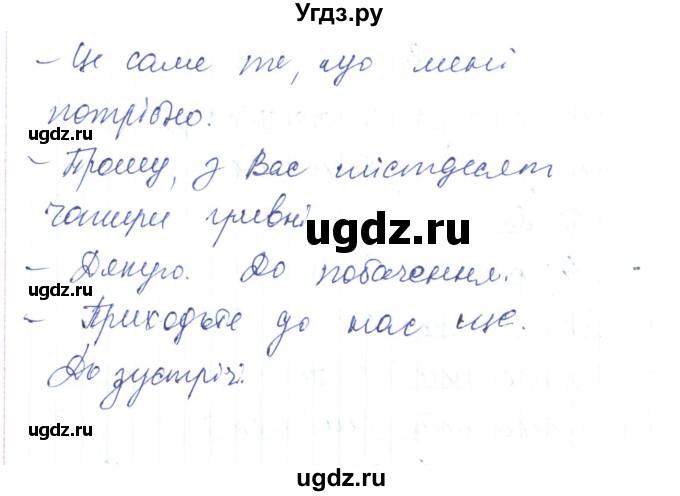 Угдз.ру
– Це саме те, що мені
потрібно.
ugdz.ru
– Прошу, з Вас шістдесят
ugdz.ru
чотири гривні
ugdz.ru
– Дякую. До побачення.
ugdz.ru
– Приходьте до нас ще.
ugdz.ru
До зустрічі.
ugdz.ru
ugdz.ru